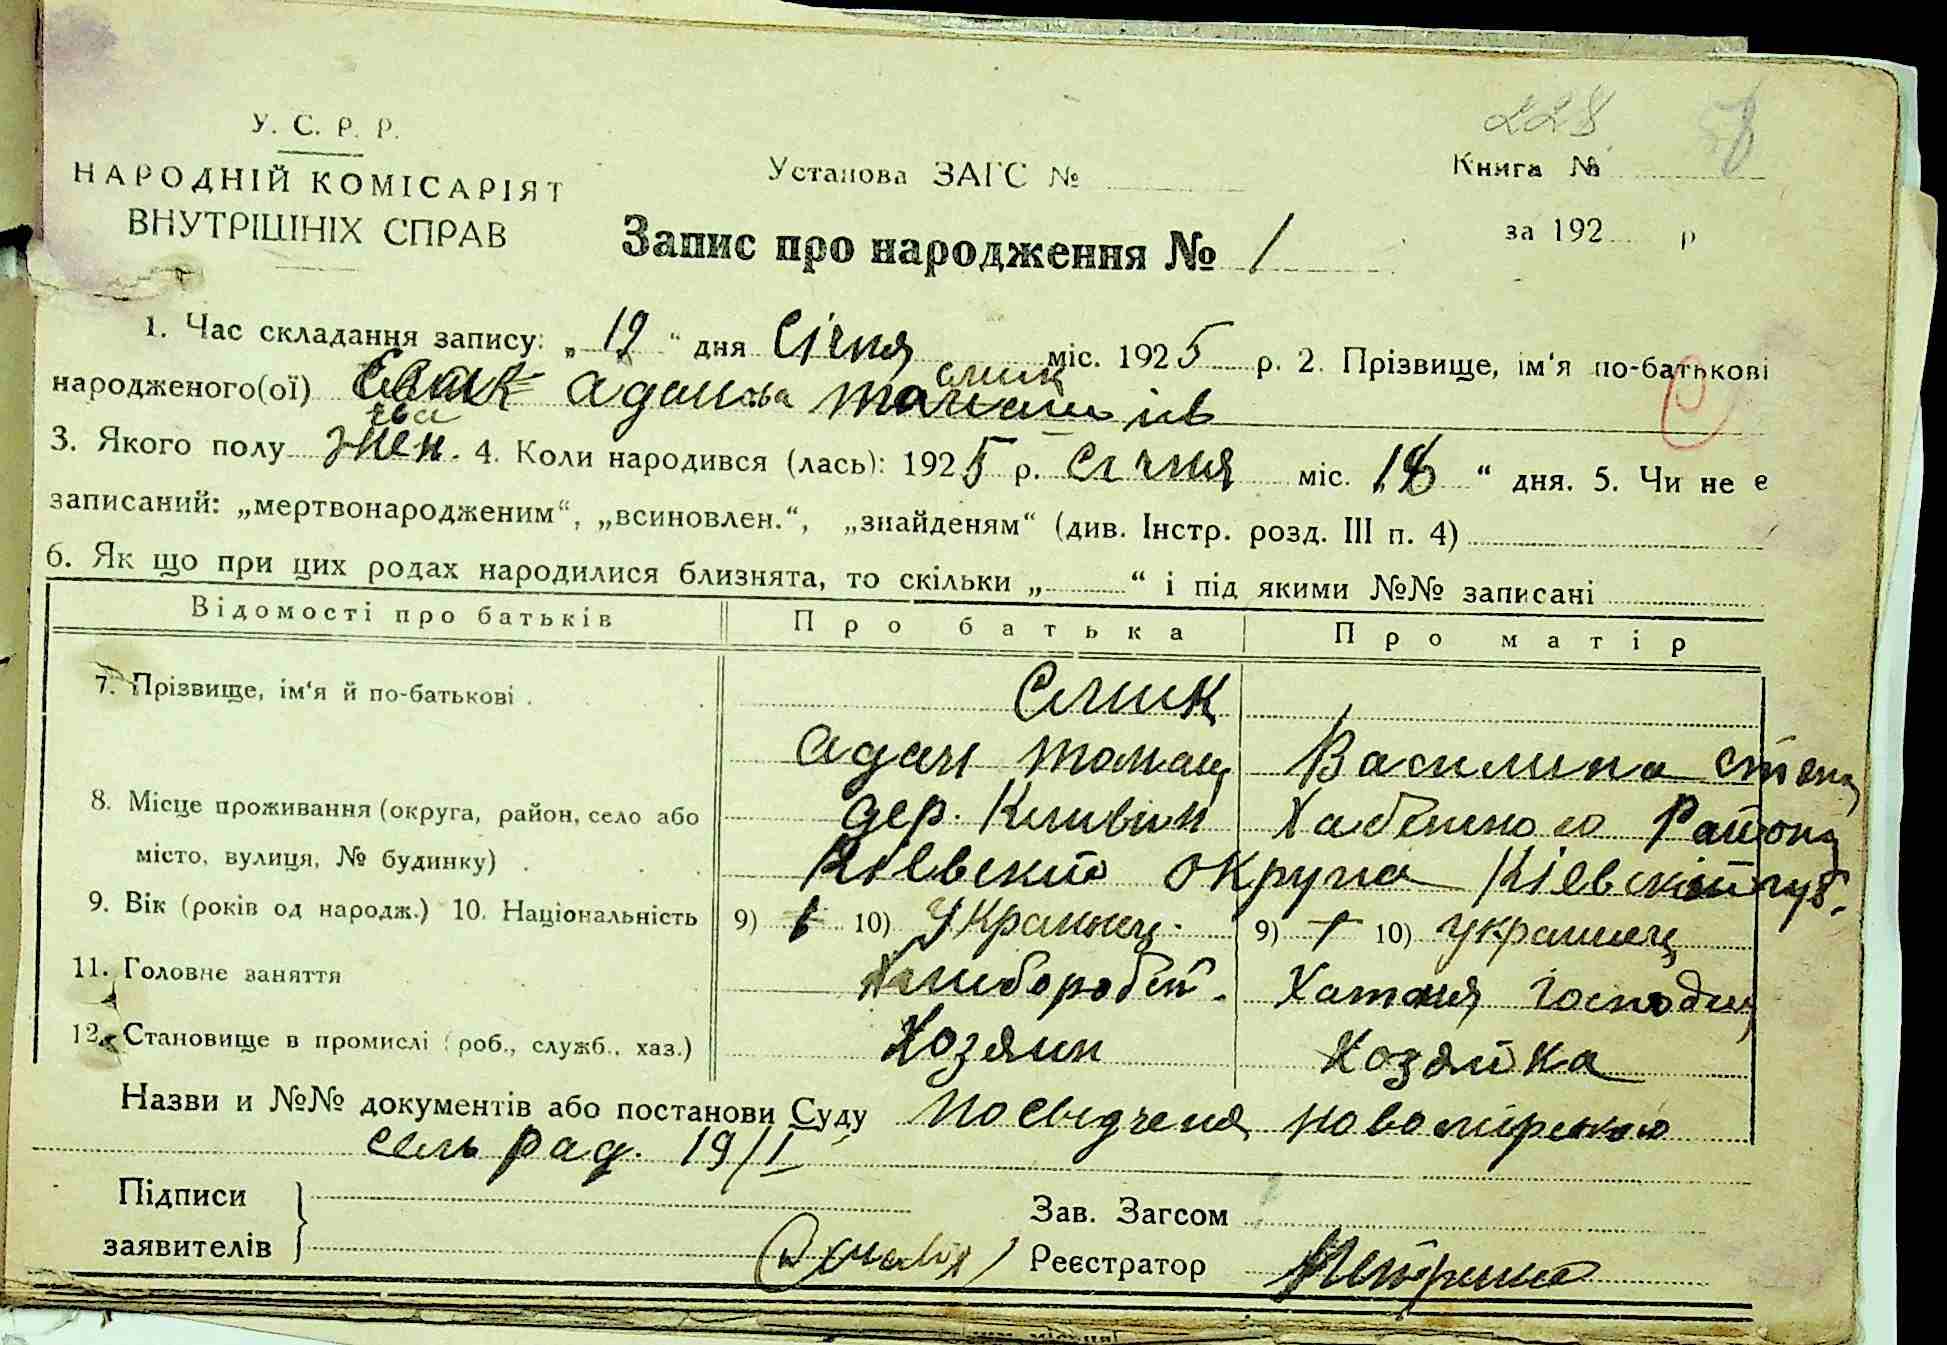 228
У. С. Р. Р.
НАРОДНІЙ КОМІСАРІЯТ
ВНУТРІШНІХ СПРАВ
Установа ЗАГС №
Книга №
за 192 р
Запис про народження № 1
1. Час складання запису: „19“ дня Січня міс. 1925 р. 2. Прізвище, ім‘я по-батькові
слик
народженого(ої) адамова
ева
3. Якого полу жен. 4. Коли народився (лась): 1925 р. Січня міс. „18“ дня. 5. Чи не є
записаний: „мертвонародженим“, „всиновлен.“, „знайденям“ (див. Інстр. розд. III п. 4)
6. Як що при цих родах народилися близнята, то скільки „ “ і під якими №№ записані
Відомості про батьків Про батька Про матір
7. Прізвище, ім‘я й по-батькові Слик
адам томащ Василина степ
8. Місце проживання (округа, район, село або дер. Кливин Хабенського Района
місто, вулиця, № будинку) Кіевской округа Кіевской губ.
9. Вік (років од народж.) 10. Національність 9) 10) Украинец. 9) 10) украинец
11. Головне заняття Хлибороб. Хатня господин
12. Становище в промислі (роб., служб., хаз.) Хозяин Хозяйка
Назви и №№ документів або постанови Суду Посвідченя новомірского
сель рад. 19/I
Підписи
заявителів
Зав. Загсом
Реєстратор Петренко